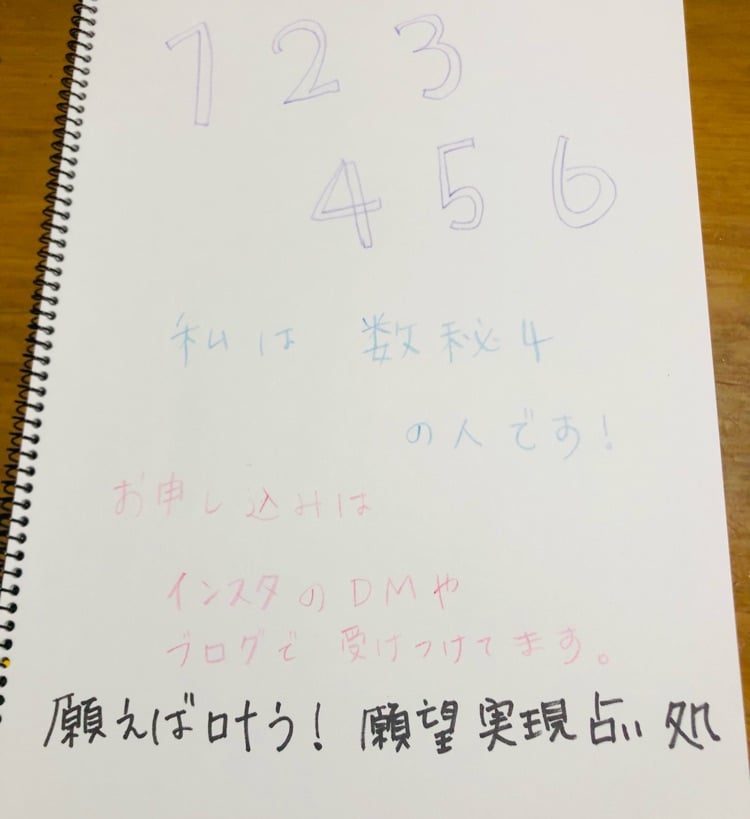 1 2 3
4 5 6
私は 数秘4
の人です!
お申し込みは
インスタのDMや
ブログで 受けつけてます。
願えば叶う! 願望実現占い処